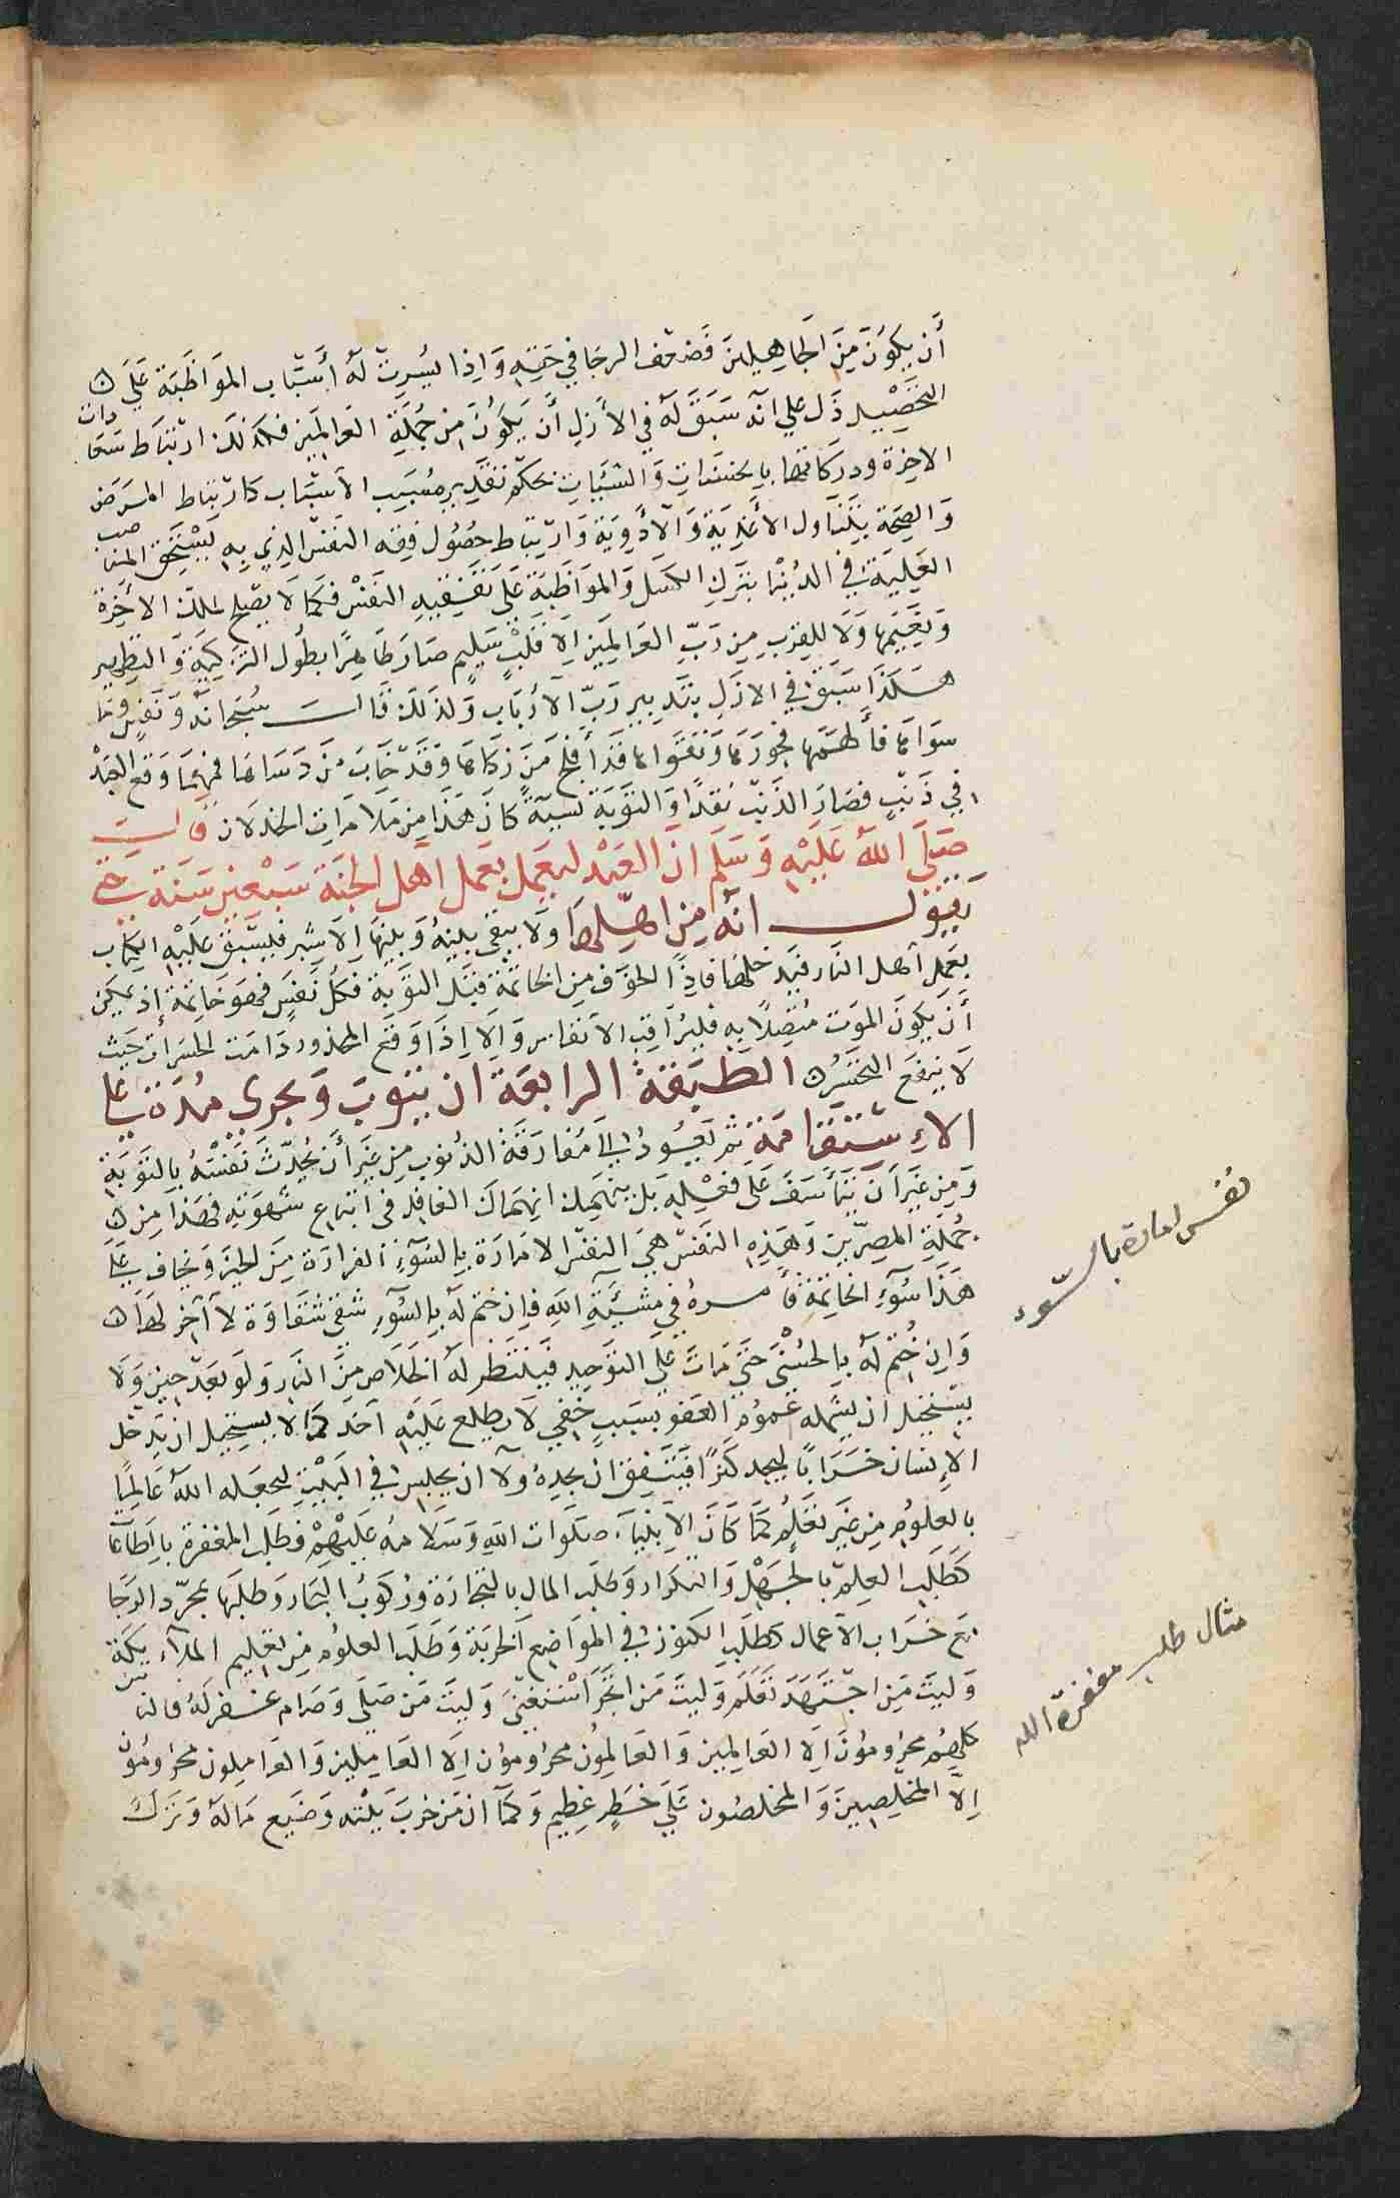 أن يكون من الجاهلين فضعف الرجا في حقه واذا يسرت له أسباب المواظبة على
التحصيل دل علي انه سبق له في الأزل أن يكون من جملة العالمين فكذلك ارتباط سعادات
الاخرة ودركاتها بالحسنات والسيات بحكم تقدير مسبب الاسباب كارتباط المرض
والصحة بتناول الأغذية والأدوية وارتباط حصول فقه النفس الذي به يستحق المناصب
العلية في الدنيا بترك الكسل والمواظبة على تفقيه النفس فكما لا يصلح لملك الاخرة
ونعيمها ولا للقرب من رب العالمين الا قلب سليم صار طاهرا بطول التزكية والتطهير
هكذا سبق في الازل بتدبير رب الارباب ولذلك قال سبحانه ونفس وما
سواها فألهمها فجورها وتقواها قد أفلح من زكاها وقد خاب من دساها فمهما وقع العبد
في ذنب فصار الذنب نقدا والتوبة نسية كان هذا من علامات الخذلان قال
صلى الله عليه وسلم ان العبد ليعمل بعمل اهل الجنة سبعين سنة حتى
يقول انه من اهلها ولا يبقى بينه وبينها الا شبر فيسبق عليه الكتاب
بعمل أهل النار فيدخلها فاذا الخوف من الخاتمة قبل التوبة فكل نفس فهو خاتمة إذ يمكن
أن يكون الموت متصلا به فليراقب الانفاس والا اذا وقع المحذور ودامت الحسرات حيث
لا ينفع التحسر الطبقة الرابعة ان يتوب ويجري مدة على
الاستقامة ثم يعود الى مفارقة الذنوب من غير أن يحدث نفسه بالتوبة
ومن غير ان يتأسف على فعله بل ينهمك انهماك الغافل في اتباع شهوته فهذا من
جملة المصرين وهذه النفس هي النفس الامارة بالسوء الفرارة من الخير ويخاف على
هذا سوء الخاتمة فأمره في مشيئة الله فان ختم له بالسوء شقى شقاوة لا آخر لها
وان ختم له بالحسنى حتى مات على التوحيد فينتظر له الخلاص من النار ولو بعد حين ولا
يستحيل ان يشمله عموم العفو بسبب خفي لا يطلع عليه احد كما لا يستحيل ان يدخل
الإنسان خرابا ليجد كنزا فيتفق ان يجده ولا ان يجلس في البيت ليجعله الله عالما
بالعلوم من غير تعلم كما كان الانبياء صلوات الله وسلامه عليهم فطلب المغفرة بالطاعات
كطلب العلم بالجهل والتكرار وطلب المال بالتجارة وركوب البحار وطلبها بمجرد الرجا
مع خراب الاعمال كطلب الكنوز في المواضع الخربة وطلب العلوم من تعليم الملائكة
وليت من اجتهد تعلم وليت من اتجر استغنى وليت من صلى وصام غفر له فالناس
كلهم محرومون الا العالمين والعالمون محرومون الا العاملين والعاملون محرومون
الا المخلصين والمخلصون على خطر عظيم وكما ان من خرب بيته وضيع ماله وترك
نفس امارة بالسوء
مثال طلب مغفرة الله